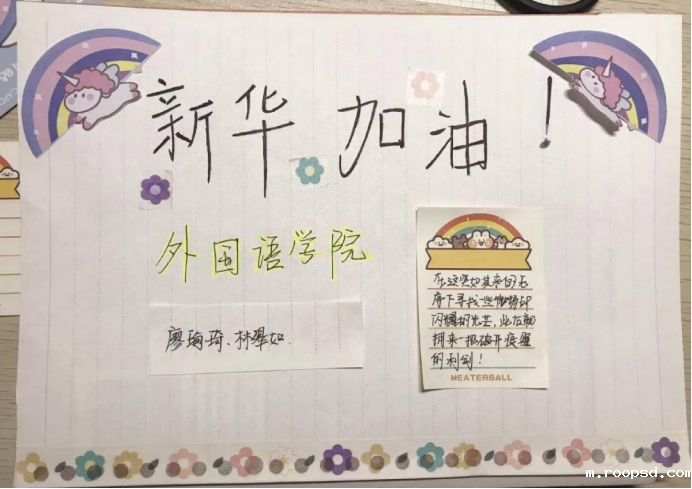 新华加油！
外国语学院
廖瑜琦、林翠如
在这突如其来的石
席下寻找一些微弱却
闪耀的光芒，此后翻
拥来一把破开疫霾
的利剑！
MEATERBALL
m.roopsd.com